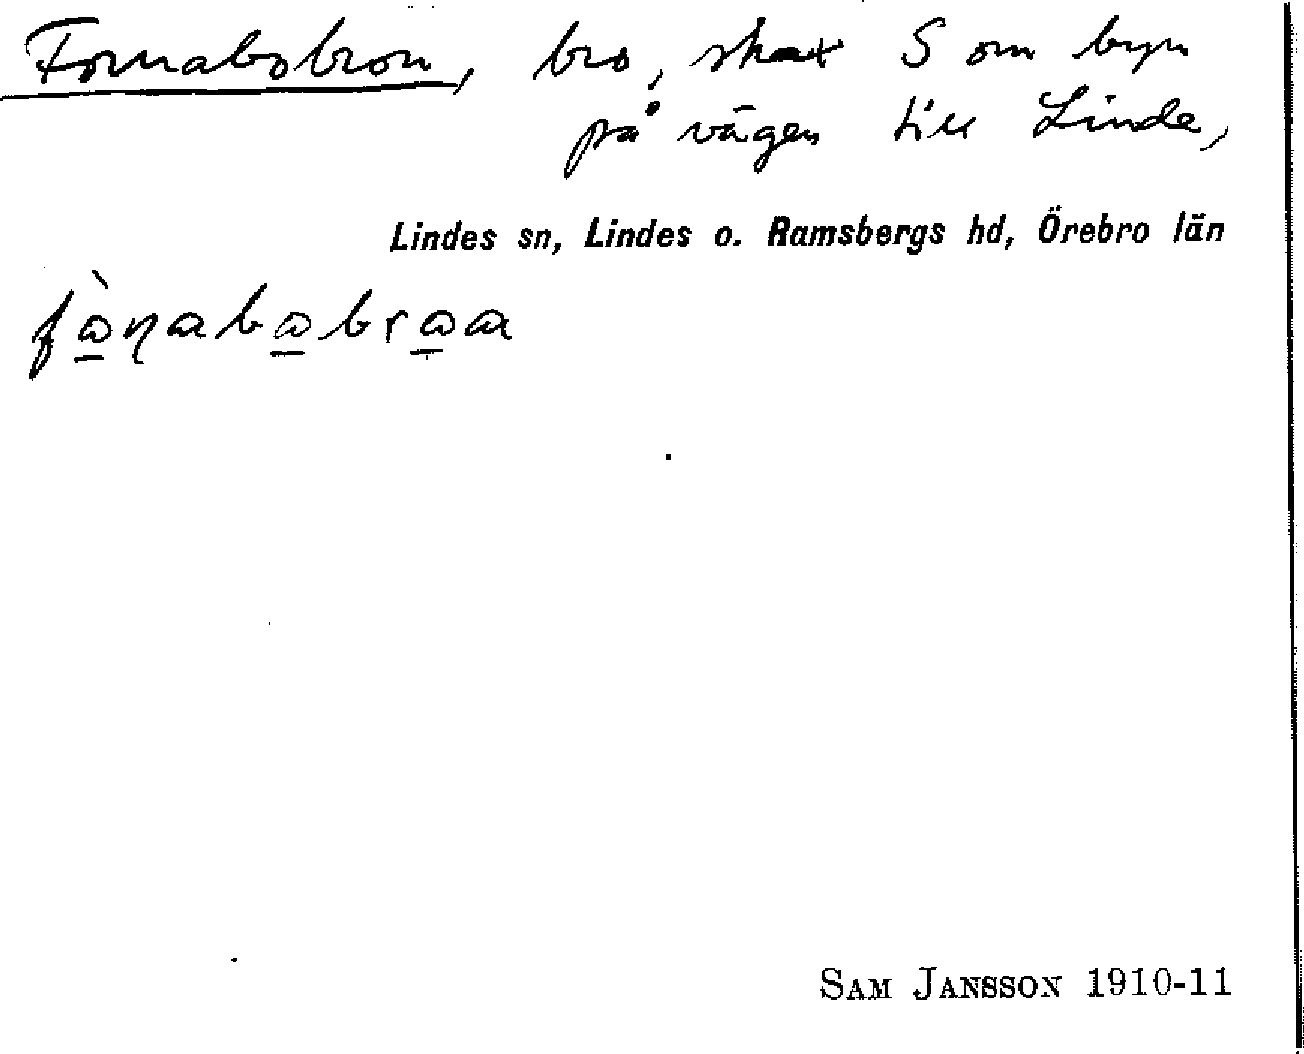 Fornabobron, bro, strax S om byn
på vägen till Linde,
Lindes sn, Lindes o. Ramsbergs hd, Örebro län
SAM JANSSON 1910-11